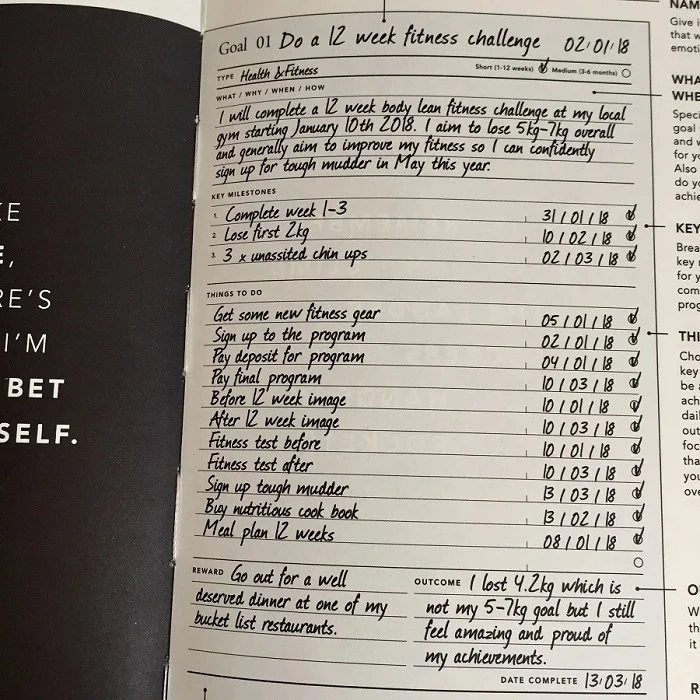 KE
E,
RE'S
I'M
BET
SELF.
Goal 01 Do a 12 week fitness challenge 02/01/18
TYPE Health & Fitness Short (1-12 weeks) Medium (3-6 months)
WHAT / WHY / WHEN / HOW
I will complete a 12 week body lean fitness challenge at my local
gym starting January 10th 2018. I aim to lose 5kg-7kg overall
and generally aim to improve my fitness so I can confidently
sign up for tough mudder in May this year.
KEY MILESTONES
1. Complete week 1-3 31/01/18
2. Lose first 2kg 10/02/18
3. 3 x unassited chin ups 02/03/18
THINGS TO DO
Get some new fitness gear 05/01/18
Sign up to the program 02/01/18
Pay deposit for program 04/01/18
Pay final program 10/03/18
Before 12 week image 10/01/18
After 12 week image 10/03/18
Fitness test before 10/01/18
Fitness test after 10/03/18
Sign up tough mudder 13/03/18
Buy nutritious cook book 13/02/18
Meal plan 12 weeks 08/01/18
REWARD Go out for a well
deserved dinner at one of my
bucket list restaurants.
OUTCOME I lost 4.2kg which is
not my 5-7kg goal but I still
feel amazing and proud of
my achievements.
DATE COMPLETE 13/03/18
NAM
Give i
that w
emoti
WHA
WHE
Speci
goal
and w
for yo
Also
do yo
achie
KEY
Brea
key r
for y
com
prog
THI
Cho
key
be a
ach
dail
out
foc
tha
you
ove
O
W
th
it
R